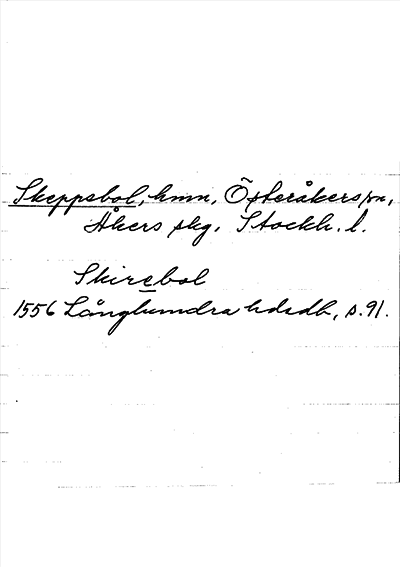 Skeppsbol, hmn, Österåkers sn,
Åkers skg. Stockh. l.
Skirebol
1556 Långhundra hdsdb, s. 91.